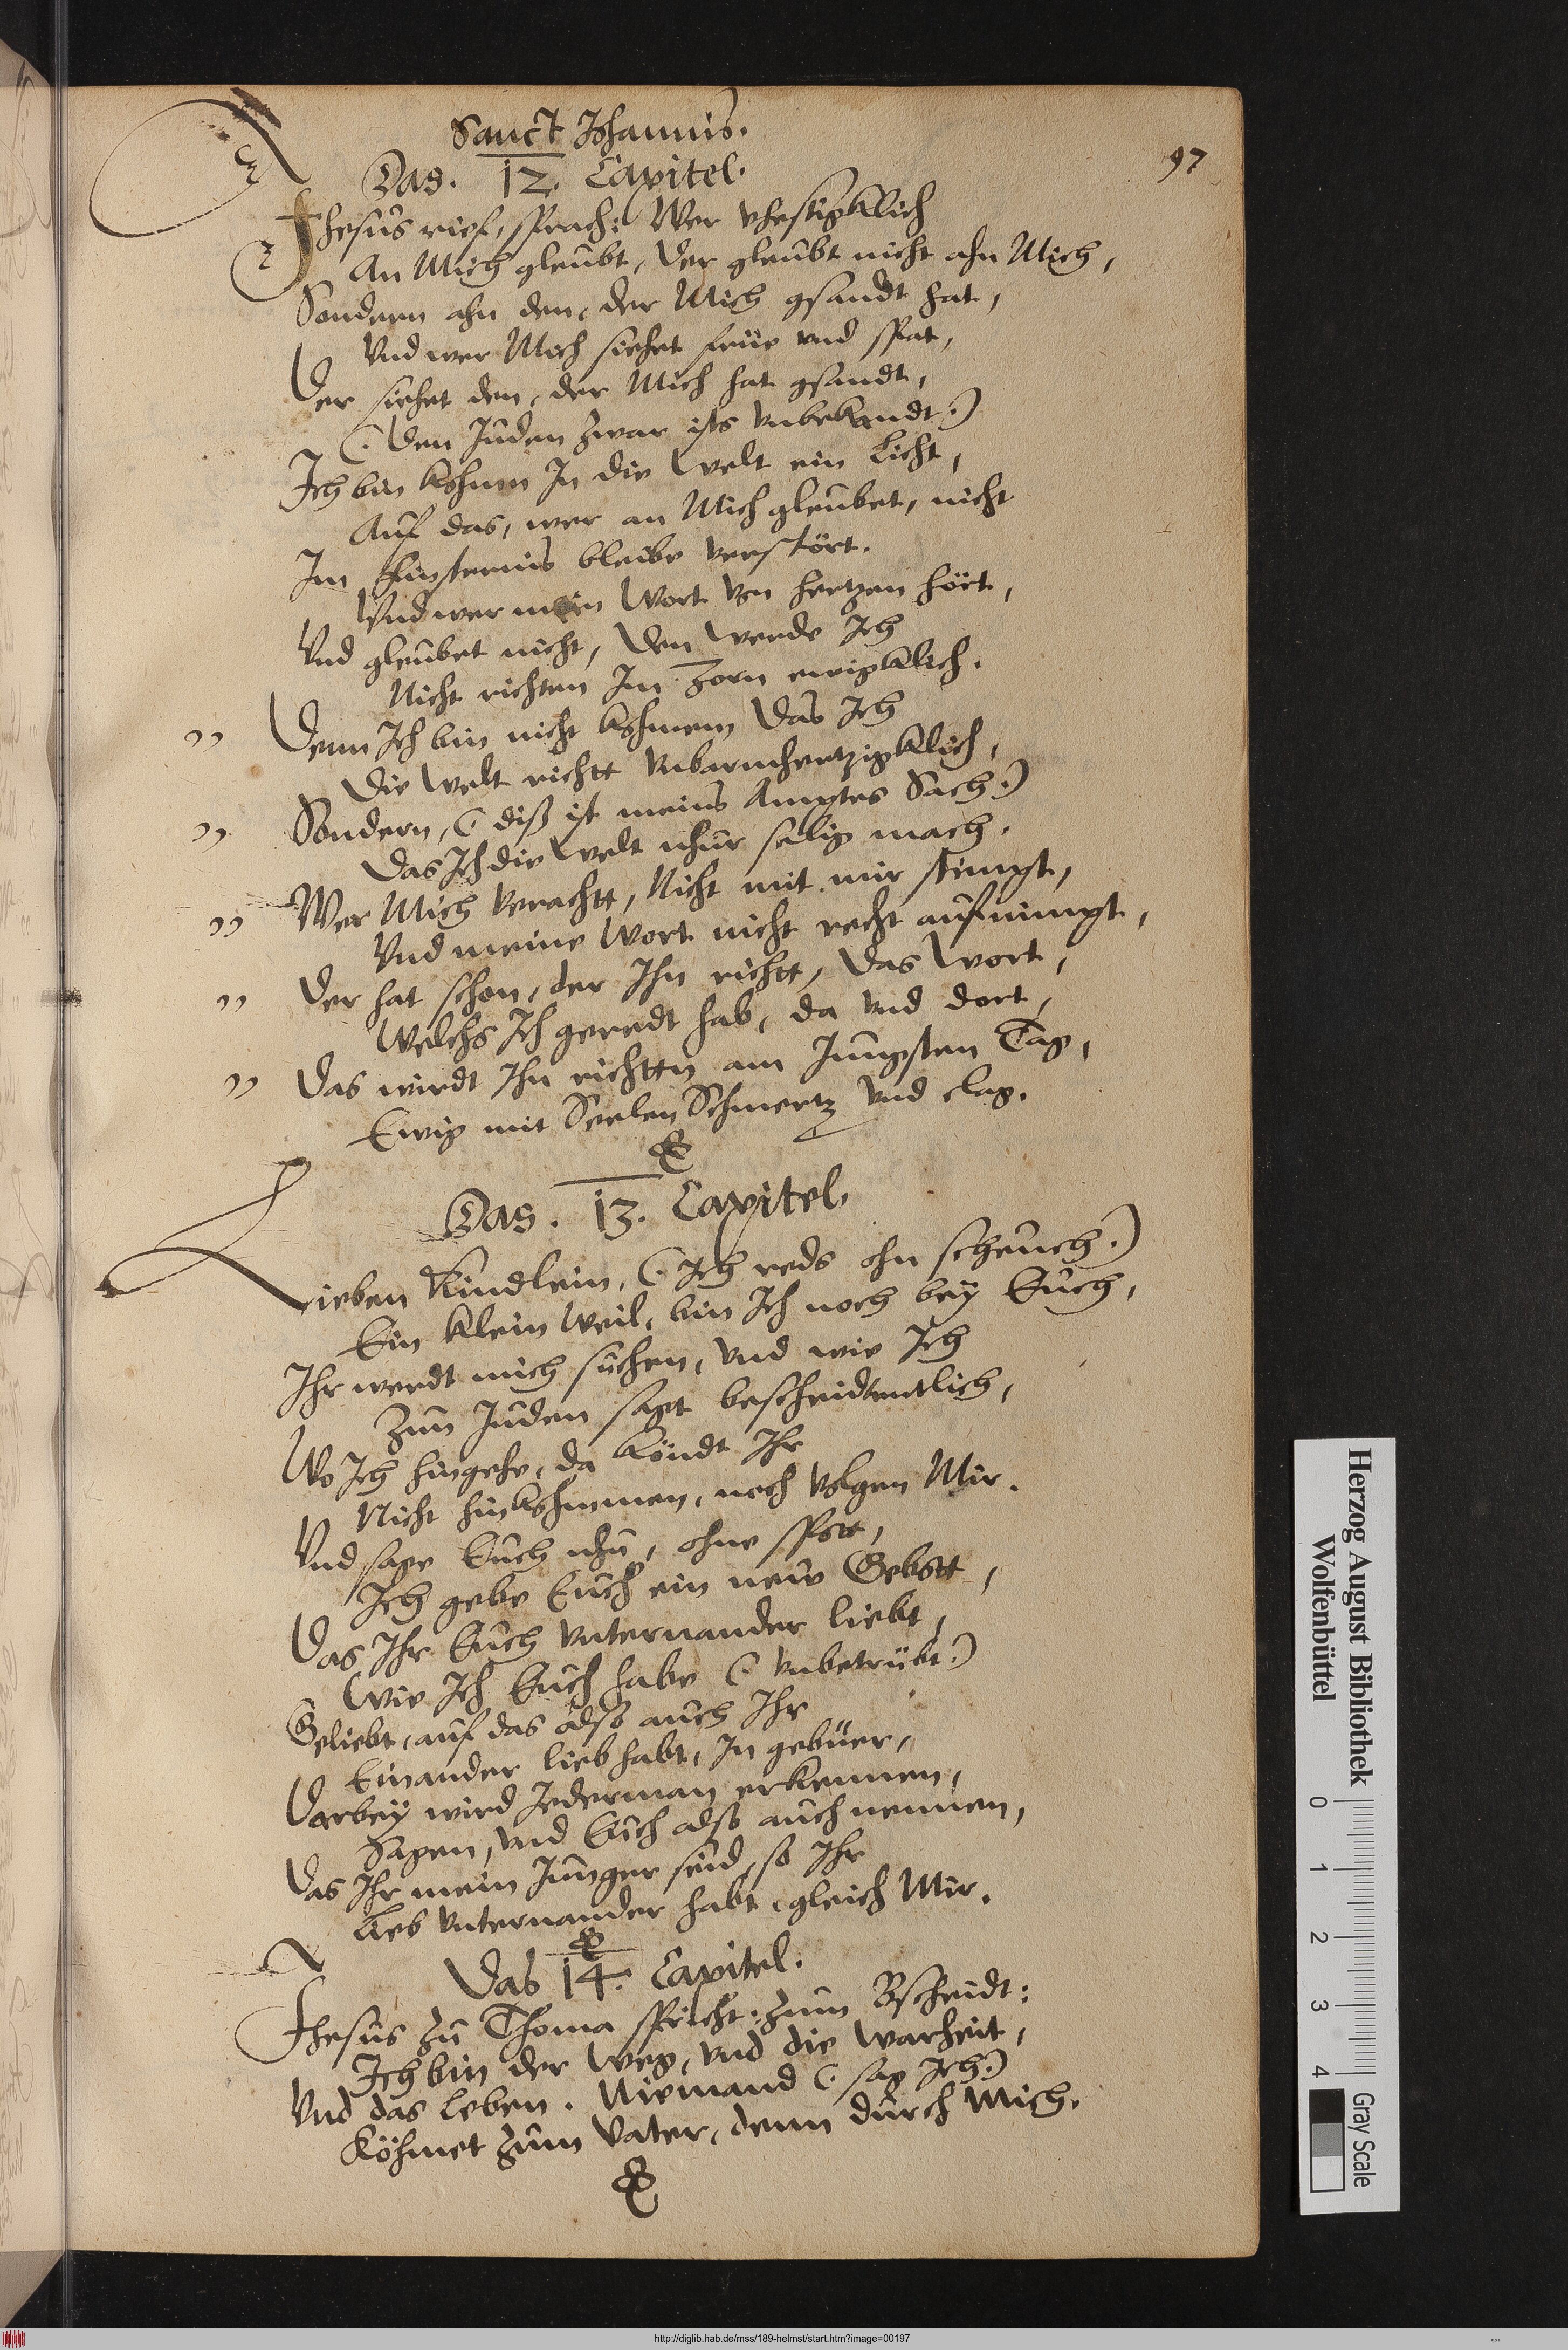 Sanct Johannis.
97
Das. 12. Capitel.
Jhesus rief, sprach: Wer vhestigklich
An Mich gleubt, der gleubt nicht ahn Mich,
Sondern ahn den, der Mich gsandt hat,
Vnd wer Mich siehet früe vnd spat,
Der siehet den, der Mich hat gsandt,
(: Den Juden zwar ists vnbekandt :)
Ich bin kohmen In die Welt ein Licht,
Auf das, wer an Mich gleubet, nicht
Im Finsternis bleibe verstört.
Vnd wer mein Wort von hertzen hört,
Vnd gleubet nicht, Den werde Ich
Nicht richten Im Zorn ewigklich.
" Denn Ich bin nicht kohmen Das Ich
Die Welt richtt vnbarmhertzigklich,
" Sondern, (: diß ist meins Amptes Sach :)
Das Ich die Welt nhur selig mach.
" Wer Mich verachtt, Nicht mit mir stimpt,
Vnd meine Wort nicht recht aufnimpt,
" Der hat schon, der Ihn richtt, Das Wort,
Welchs Ich geredt hab, da vnd dort,
" Das wirdt Ihn richttn am Jungsten Tag,
Ewig mit Seelen Schmertz vnd clag.
Das. 13. Capitel.
Lieben Kindlein, (: Ich reds ohn scheuch :)
Ein klein Weil, bin Ich noch bey Euch,
Ihr werdt mich suchen, vnd wie Ich
Zun Juden sagt bescheidtentlich,
Wo Ich hingehe, da köndt Ihr
Nicht hinkohmmen, noch volgen Mir.
Vnd sage Euch nhu, ohne spott,
Ich gebe Euch ein neue Gebott,
Das Ihr Euch vnternander liebt,
Wie Ich Euch habe (: vnbetrübt :)
Geliebt, auf das also auch Ihr
Einander lieb habt, In gebüer,
Darbey wird Jederman erkennen,
Sagen, vnd Euch also auch nennen,
Das Ihr mein Junger seid, so Ihr
Lieb vnternander habt, gleich Mir.
Das 14. Capitel.
Jhesus zu Thoma spricht, zum Bscheidt:
Ich bin der Weg, vnd die Warheit,
Vnd das Leben. Niemand (: sag Ich :)
Köhmet zum Vater, denn durch Mich.
Herzog August Bibliothek
Wolfenbüttel
0 1 2 3 4
Gray Scale
http://diglib.hab.de/mss/189-helmst/start.htm?image=00197